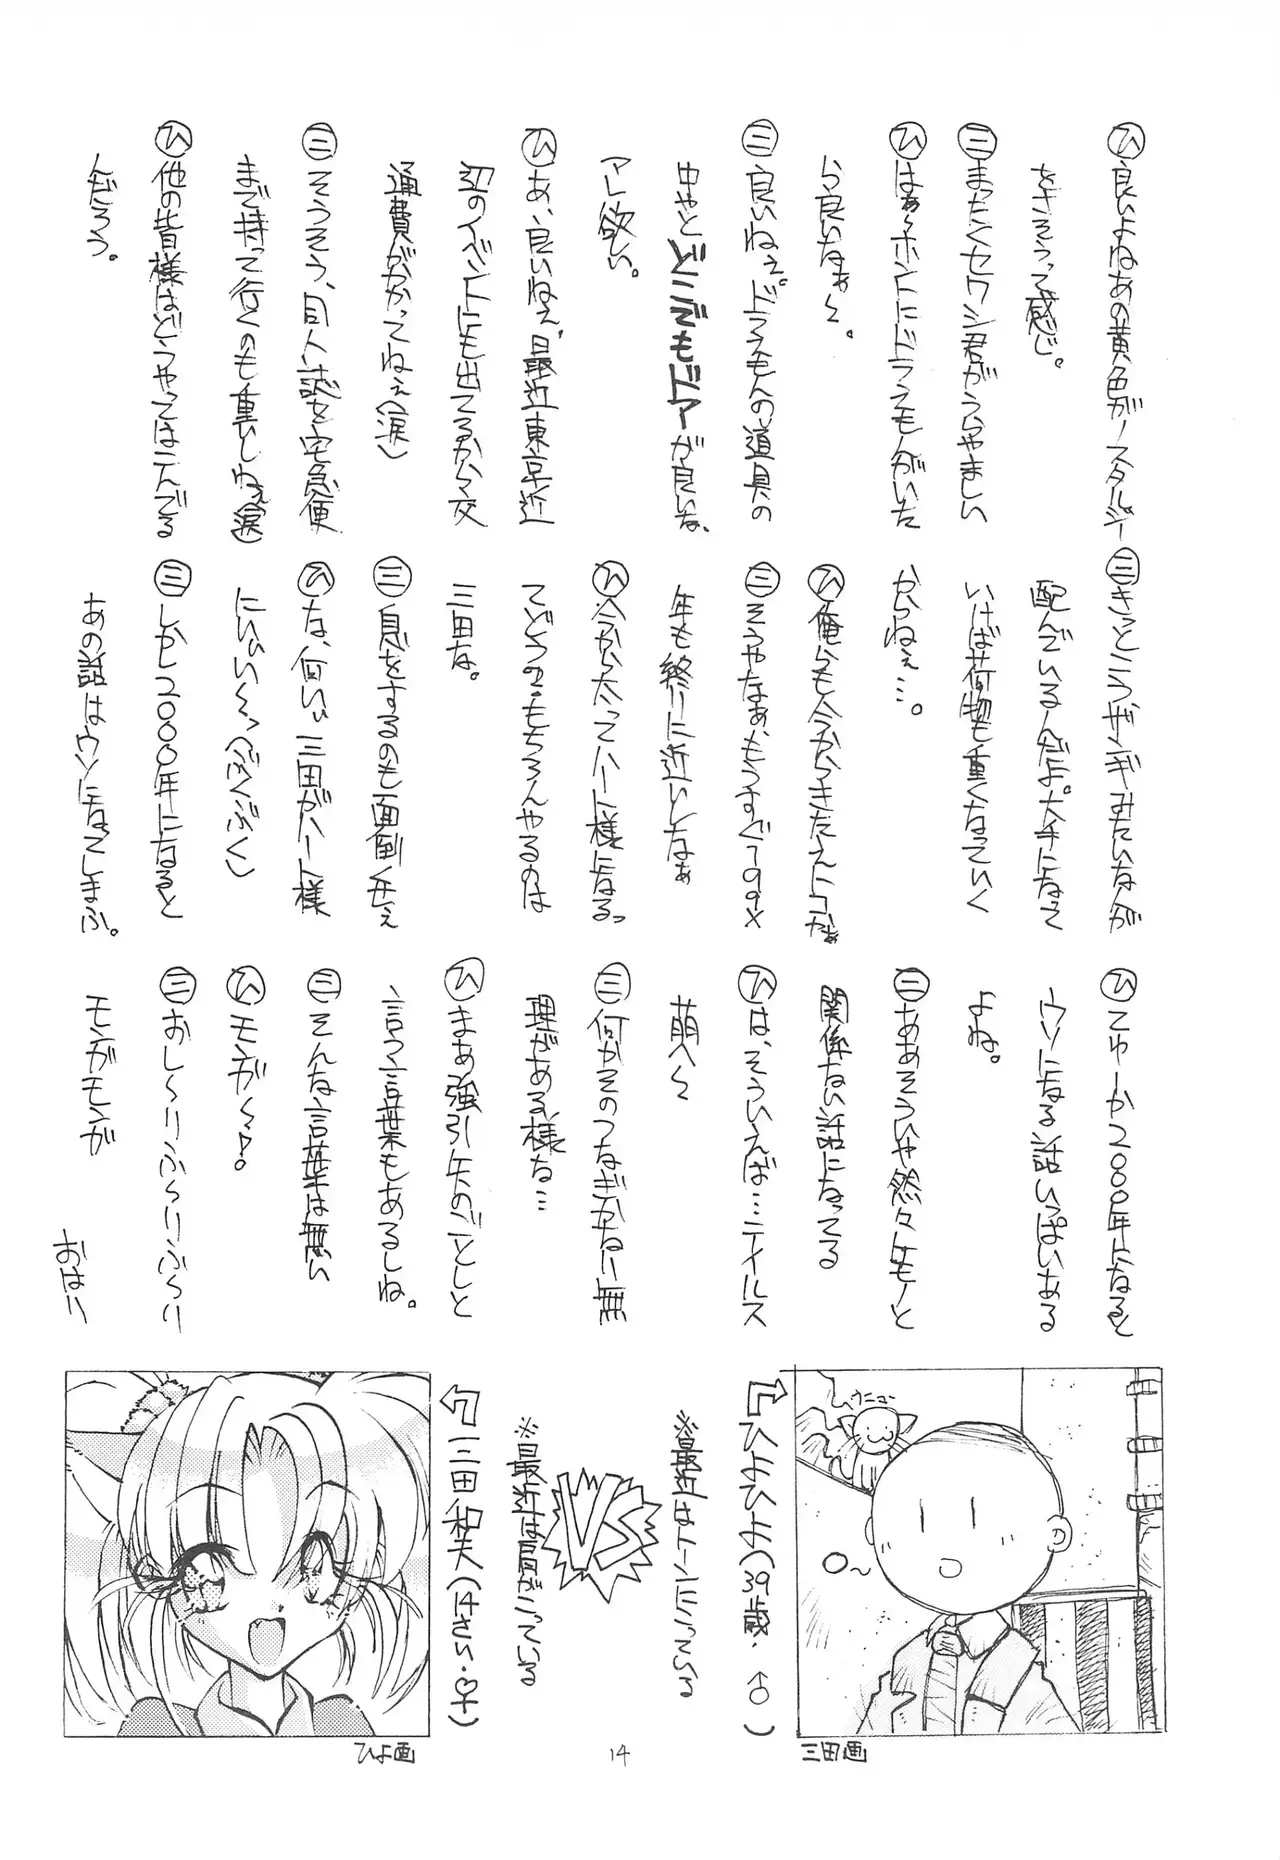 ひ 良いよねあの黄色がノスタルジー
をきそうって感じ。
三 まったくセワシ君がうらやましい
ひ はぁ〜ホントにドラえもんがいた
ら良いなぁ〜。
三 良いねぇ。ドラえもんの道具の
中やとどこでもドアーが良いな、
アレ欲い。
ひ あ、良いねぇ。最近東京近
辺のイベントにも出てるから交
通費がかかってねぇ(涙)
三 そうそう、同人誌を宅急便
まで持って行くのも重いしねぇ(涙)
ひ 他の皆様はどうやってはこんでる
んだろう。
三 きっとこうザンギみたいなが
配んでいるんだよ。大手になって
いけば荷物も重くなっていく
からねぇ…。
ひ 俺らも今からきたえトコかぁ
三 そうやなぁ、もうすぐ199X
年も終りに近いしなぁ
ひ 今から太ってハート様になるっ
てどう?もちろんやるのは
三田な。
三 息をするのも面倒くせぇ
ひ な、何いぃ三田がハート様
にいぃい〜っ(ぶくぶく)
三 しかし2000年になると
あの話はウソになってしまふ。
ひ てゆーか2000年になると
ウソになる話いっぱいある
よね。
三 ああそういや然々モノと
関係ない話になってる
ひ は、そういえば…テイルス
萌へ〜
三 何かそのつなぎかたに無
理がある様な…
ひ まあ強引矢のごとしと
言う言葉もあるしね。
三 そんな言葉は無い
ひ モンガ〜!
三 おし〜りふ〜りふ〜り
モンガモンガ
おはり
ひよひよ(39歳・♂)
※最近はトーンにこっている
VS
※最近は肩がこっている
三田和夫(14さい・♀)
ウニュー
三田画
ひよ画
14